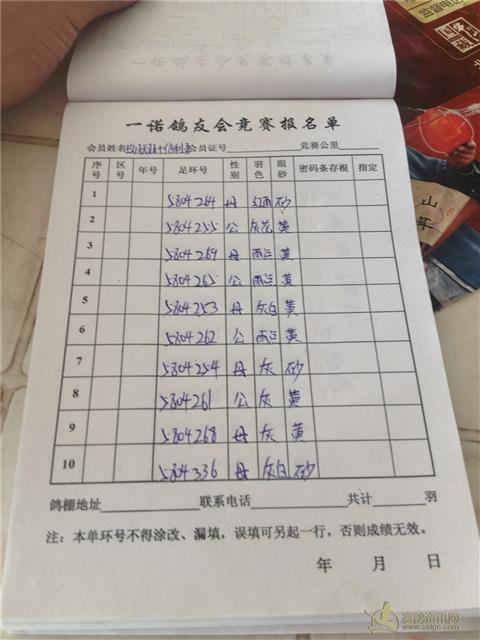 监督电话
一诺鸽友会竞赛报名单
会员姓名 会员证号 竞赛公里
序号 区号 年号 足环号 性别 羽色 眼砂 密码条存根 指定
1 5804264 母 红雨 砂
2 5804255 公 灰花 黄
3 5804269 母 雨点 黄
4 5804265 公 雨点 黄
5 5804253 母 灰白 黄
6 5804262 公 雨点 黄
7 5804254 母 灰 砂
8 5804261 公 灰 黄
9 5804268 母 灰 黄
10 5804336 母 灰白 砂
鸽棚地址 联系电话 共计 羽
注：本单环号不得涂改、漏填，误填可另起一行，否则成绩无效。
年 月 日
赛鸽资讯网